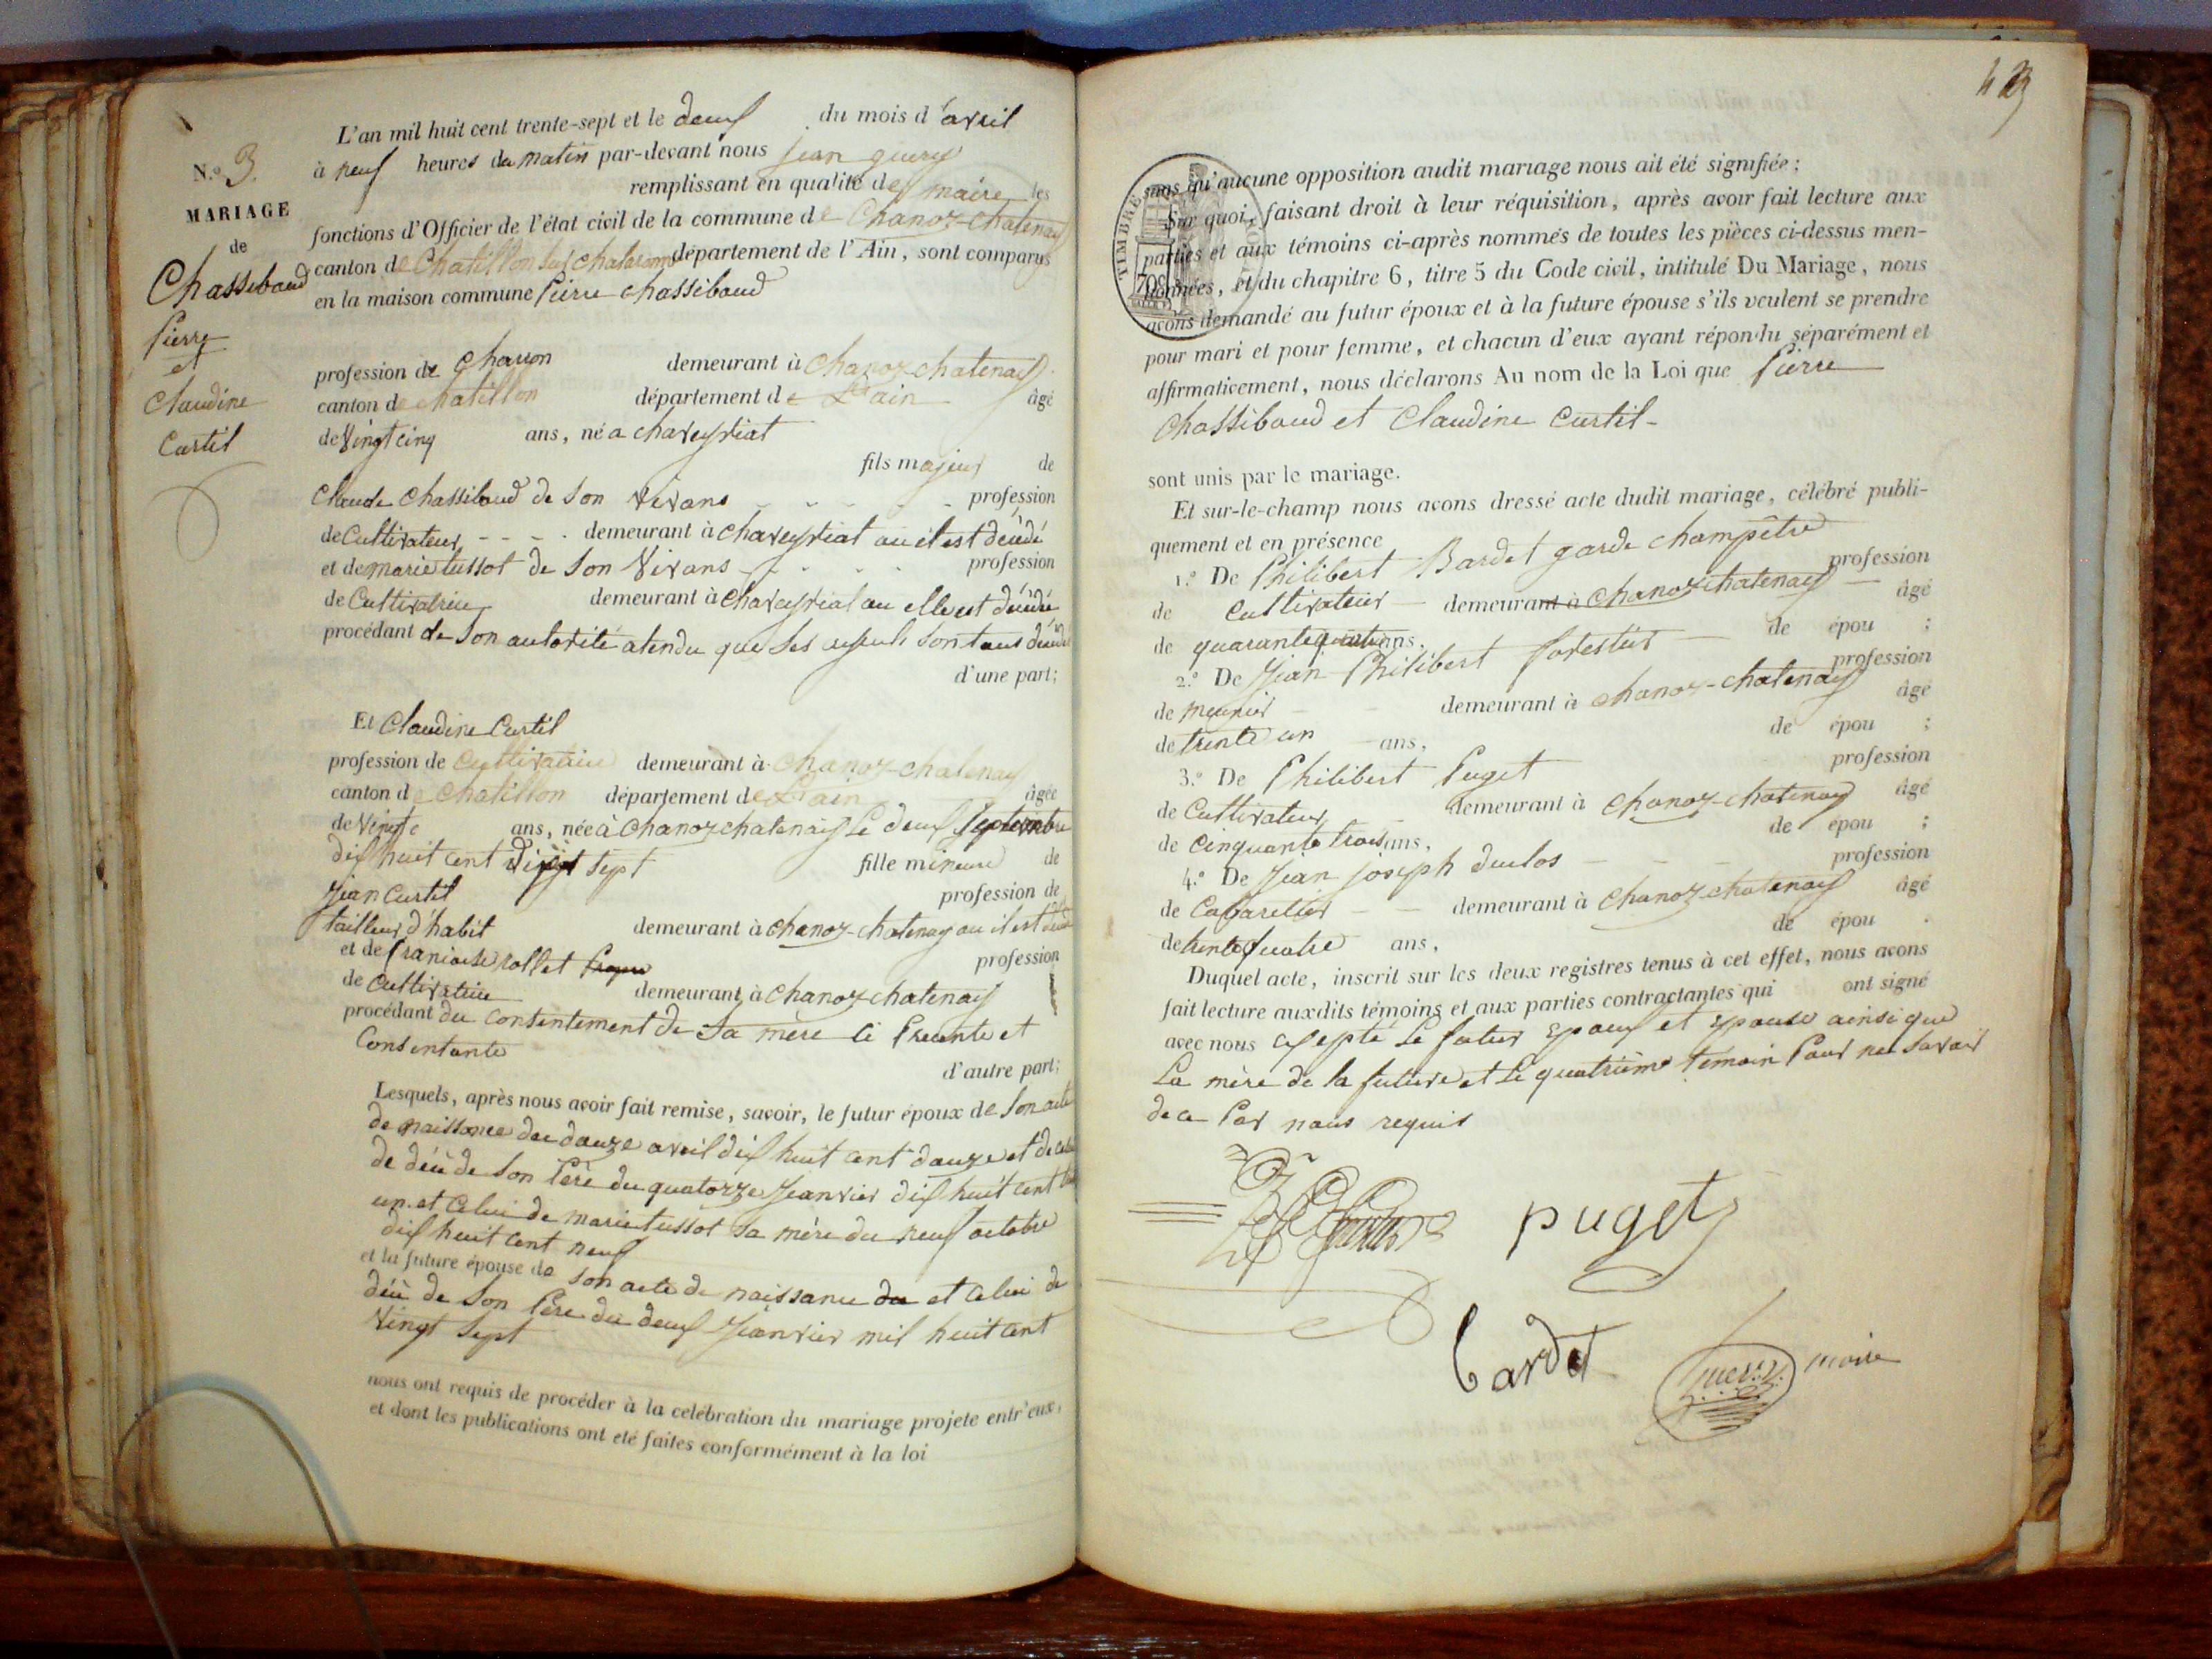 N.o 3.
MARIAGE
de
Chassiboud
Pierre
et
Claudine
Curtil
L'an mil huit cent trente-sept et le deux du mois d'avril
à neuf heures du matin par-devant nous jean guery
remplissant en qualité de maire les
fonctions d'Officier de l'état civil de la commune de Chanoz-Chatenay
canton de Chatillon sur chalaronne département de l'Ain, sont comparus
en la maison commune Pierre chassiboud
profession de charron demeurant à chanoz chatenay
canton de chatillon département de L'ain âgé
de Vingt cinq ans, né a chaveyriat
fils majeur de
Claude Chassiboud de Son Vivans profession
de Cultivateur demeurant à chaveyriat ou il est décédé
et de marie tussot de Son Vivans profession
de Cultivatrice demeurant à chaveyriat ou elle est décédée
procédant de Son autorité atendu que Ses ayeuls Sont tous décédé
d'une part;
Et Claudine Curtil
profession de Cultivatrice demeurant à Chanoz-chatenay
canton de Chatillon département de L'ain âgée
de Vingt ans, née à chanoz chatenay le deux Septembre
dix huit cent sept
fille mineure de
Jean Curtil profession de
tailleur d'habit demeurant à chanoz-chatenay ou il est décédé
et de francoise rollet profession
de Cultivatrice demeurant à chanoz chatenay
procédant du consentement de Sa mère ci Presente et
Consentante
d'autre part;
Lesquels, après nous avoir fait remise, savoir, le futur époux de Son acte
de naissance du douze avril dix huit cent douze et de celui
de décè de Son Père du quatorze Jeanvier dix huit cent
un et Celui de marie tussot Sa mère du neuf octobre
dix huit cent neuf
et la future épouse de Son acte de naissance du et celui de
décè de Son Père du deux Jeanvier mil huit cent
Vingt Sept
nous ont requis de procéder à la celébration du mariage projeté entr'eux,
et dont les publications ont eté faites conformément à la loi
TIMBRE
sans qu'aucune opposition audit mariage nous ait été signifiée;
Sur quoi, faisant droit à leur réquisition, après avoir fait lecture aux
parties et aux témoins ci-après nommés de toutes les pièces ci-dessus men-
tionnées, et du chapitre 6, titre 5 du Code civil, intitulé Du Mariage, nous
avons demandé au futur époux et à la future épouse s'ils veulent se prendre
pour mari et pour femme, et chacun d'eux ayant répondu séparément et
affirmativement, nous déclarons Au nom de la Loi que Pierre
Chassiboud et Claudine Curtil-
sont unis par le mariage.
Et sur-le-champ nous avons dressé acte dudit mariage, célébré publi-
quement et en présence
1.o De Philibert Bardet garde champêtre profession
de Cultivateur demeurant à chanoz chatenay âgé
de quarante quatre ans, de épou ;
2.o De Jean Philibert forestier profession
de meunier demeurant à chanoz-chatenay âgé
de trente un ans, de épou ;
3.o De Philibert Puget profession
de Cultivateur demeurant à chanoz-chatenay âgé
de Cinquante trois ans, de épou ;
4.o De Jean joseph duclos profession
de Cabaretier demeurant à Chanoz-chatenay âgé
de trente quatre ans, de épou .
Duquel acte, inscrit sur les deux registres tenus à cet effet, nous avons
fait lecture auxdits témoins et aux parties contractantes qui ont signé
avec nous exepté Le futur Epoux et Epouse ainsi que
La mère de la future et Le quatrième témoin Pour ne Savoir
de ce Par nous requis
puget
bardet
guery maire